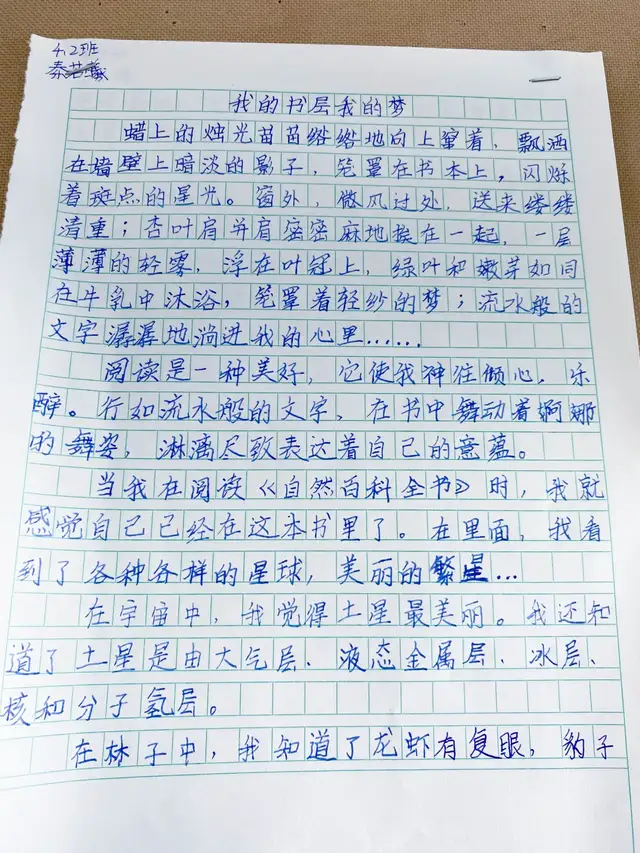 4.2班
我的书层我的梦
蜡上的烛光苗苗绺绺地向上窜着，飘洒
在墙壁上暗淡的影子，笼罩在书本上，闪烁
着斑点的星光。窗外，微风过处，送来缕缕
清重；杏叶肩并肩密密麻地挨在一起，一层
薄薄的轻雾，浮在叶冠上，绿叶和嫩芽如同
在牛乳中沐浴，笼罩着轻纱的梦；流水般的
文字潺潺地淌进我的心里……
阅读是一种美好，它使我神往倾心、乐
醉。行如流水般的文字，在书中舞动着婀娜
的舞姿，淋漓尽致表达着自己的意蕴。
当我在阅读《自然百科全书》时，我就
感觉自己已经在这本书里了。在里面，我看
到了各种各样的星球，美丽的繁星…
在宇宙中，我觉得土星最美丽。我还知
道了土星是由大气层、液态金属层、冰层、
核和分子氢层。
在林子中，我知道了龙虾有复眼，豹子